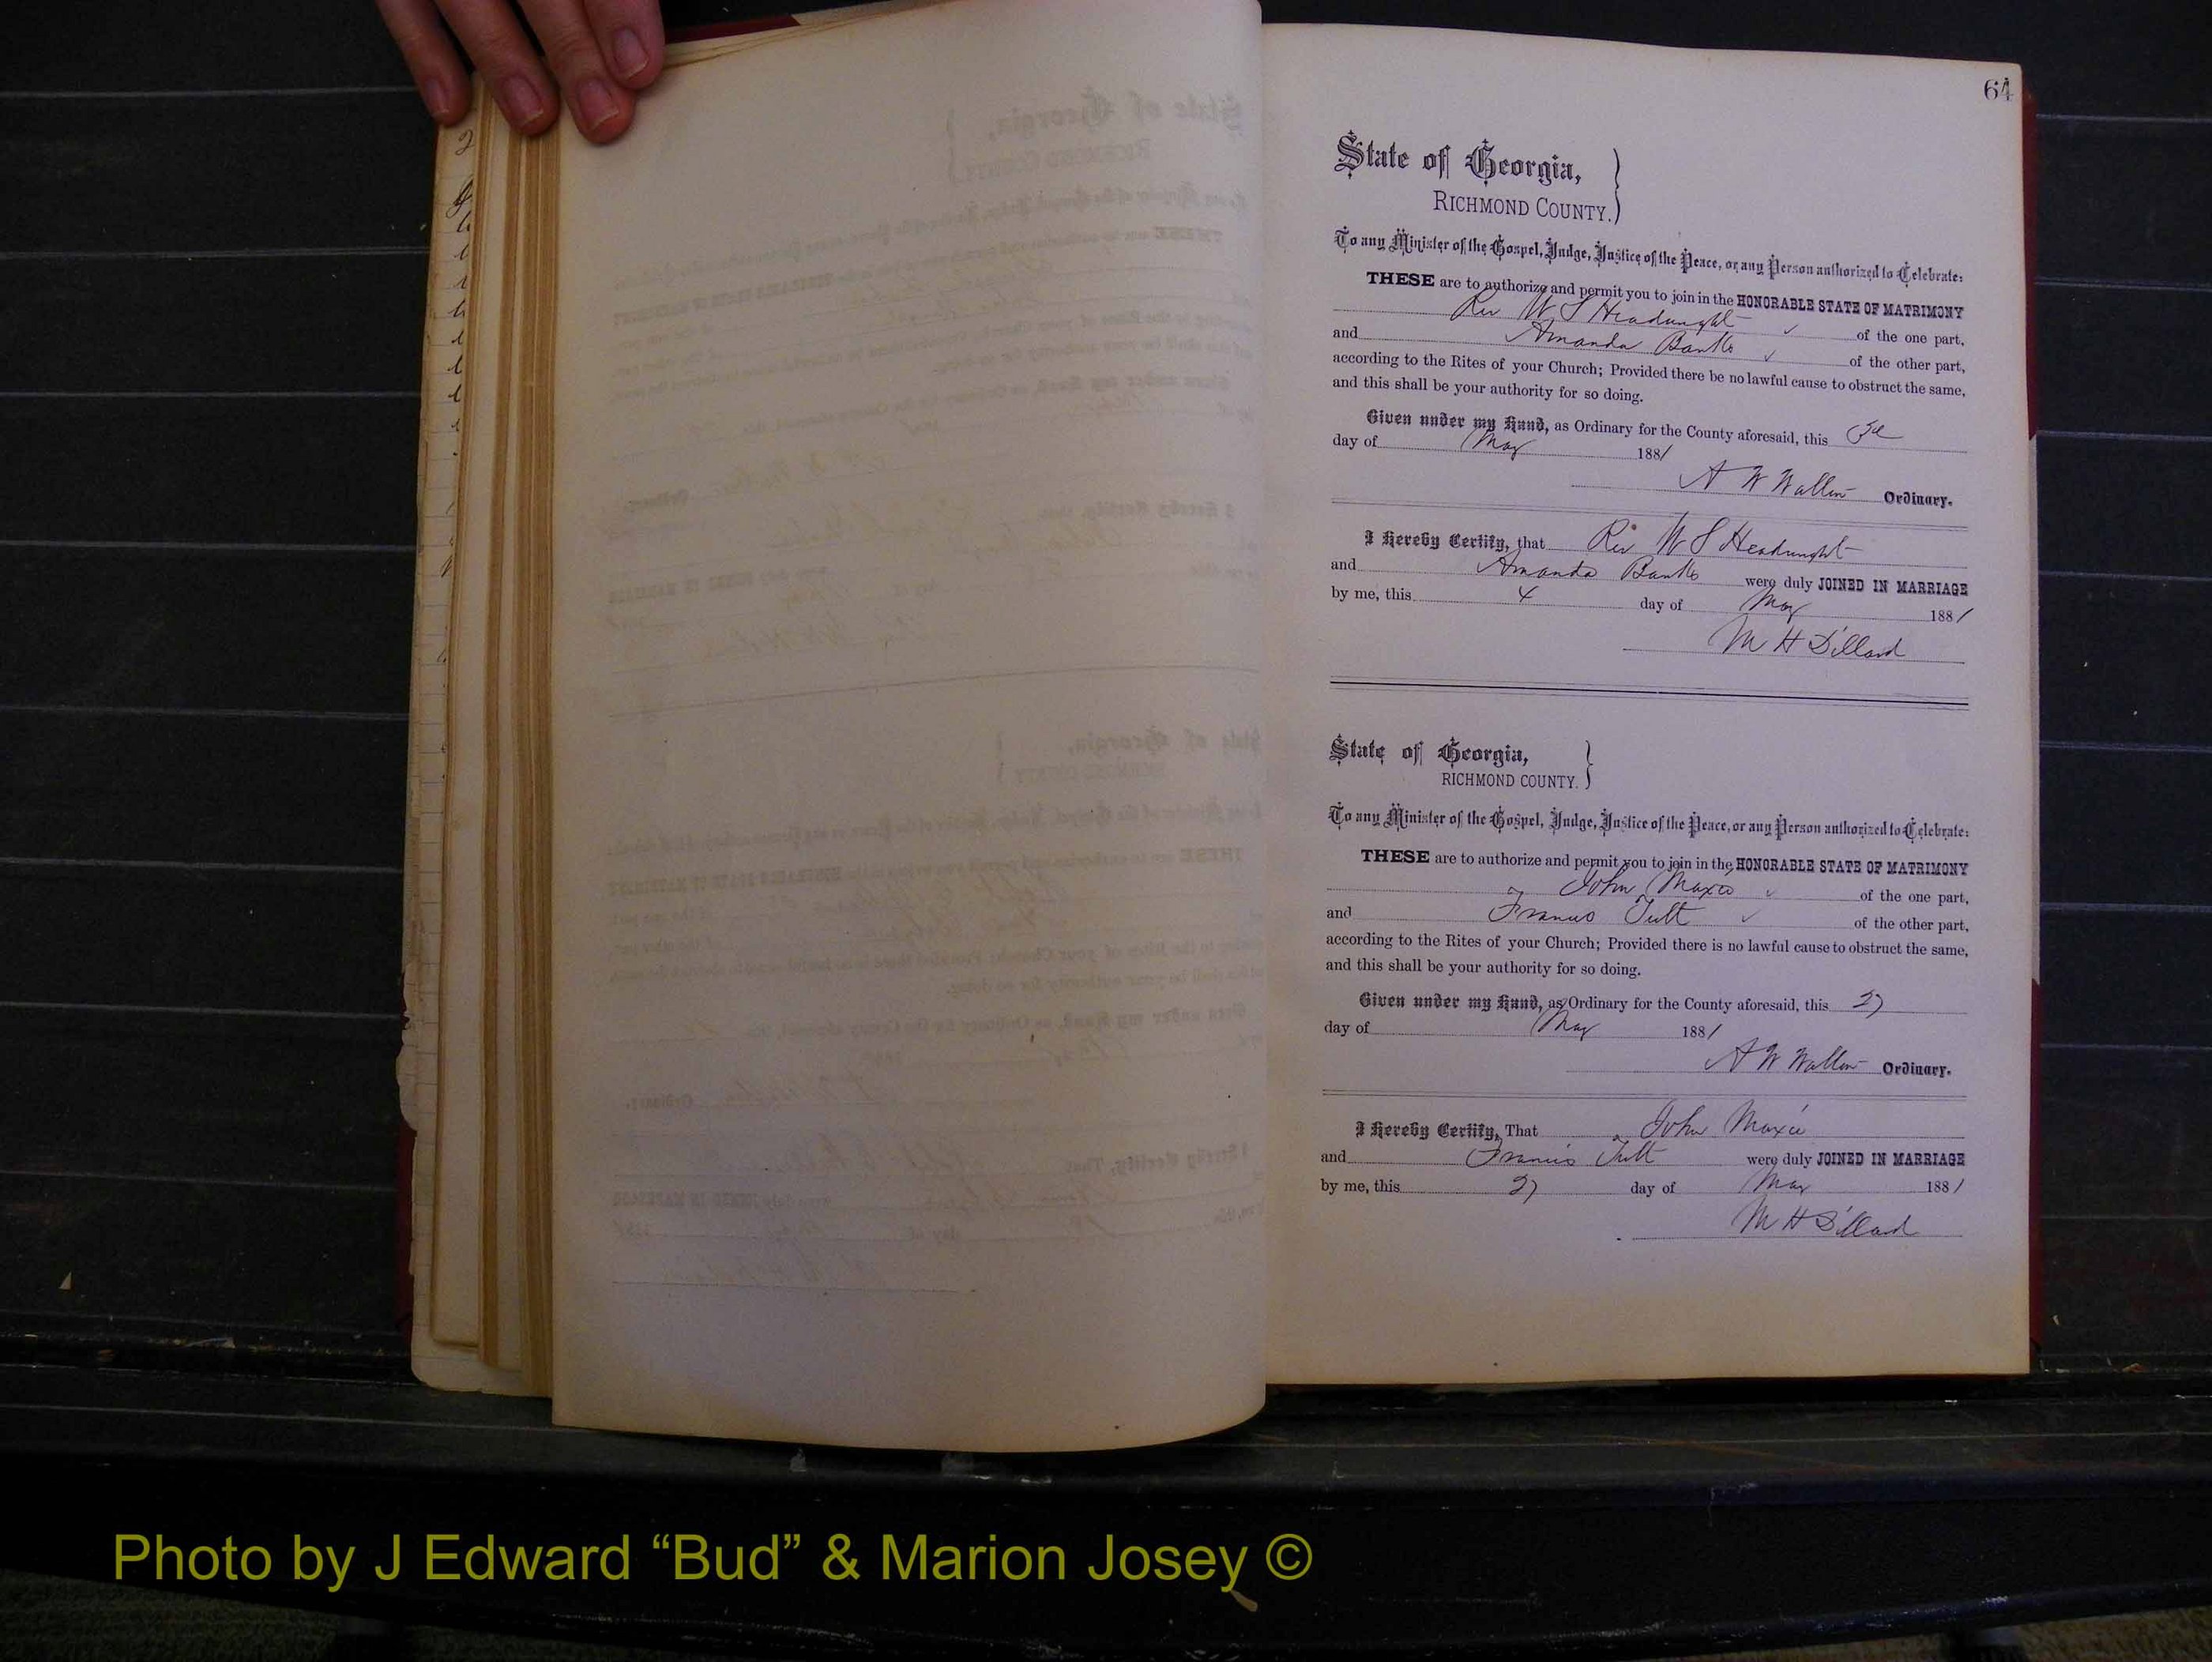 64
State of Georgia,
RICHMOND COUNTY.
To any Minister of the Gospel, Judge, Justice of the Peace, or any Person authorized to Celebrate:
THESE are to authorize and permit you to join in the HONORABLE STATE OF MATRIMONY
Rev W S Headwright of the one part,
and Amanda Banks of the other part,
according to the Rites of your Church; Provided there be no lawful cause to obstruct the same,
and this shall be your authority for so doing.
Given under my Hand, as Ordinary for the County aforesaid, this
day of May 1881
A W Walton Ordinary.
I Hereby Certify, that Rev W S Headwright
and Amanda Banks were duly JOINED IN MARRIAGE
by me, this 4 day of May 1881
M H Dillard
State of Georgia,
RICHMOND COUNTY.
To any Minister of the Gospel, Judge, Justice of the Peace, or any Person authorized to Celebrate:
THESE are to authorize and permit you to join in the HONORABLE STATE OF MATRIMONY
John Maxie of the one part,
and Francis Tutt of the other part,
according to the Rites of your Church; Provided there is no lawful cause to obstruct the same,
and this shall be your authority for so doing.
Given under my Hand, as Ordinary for the County aforesaid, this 27
day of May 1881
A W Walton Ordinary.
I Hereby Certify, That John Maxie
and Francis Tutt were duly JOINED IN MARRIAGE
by me, this 27 day of May 1881
M H Dillard
Photo by J Edward “Bud” & Marion Josey ©